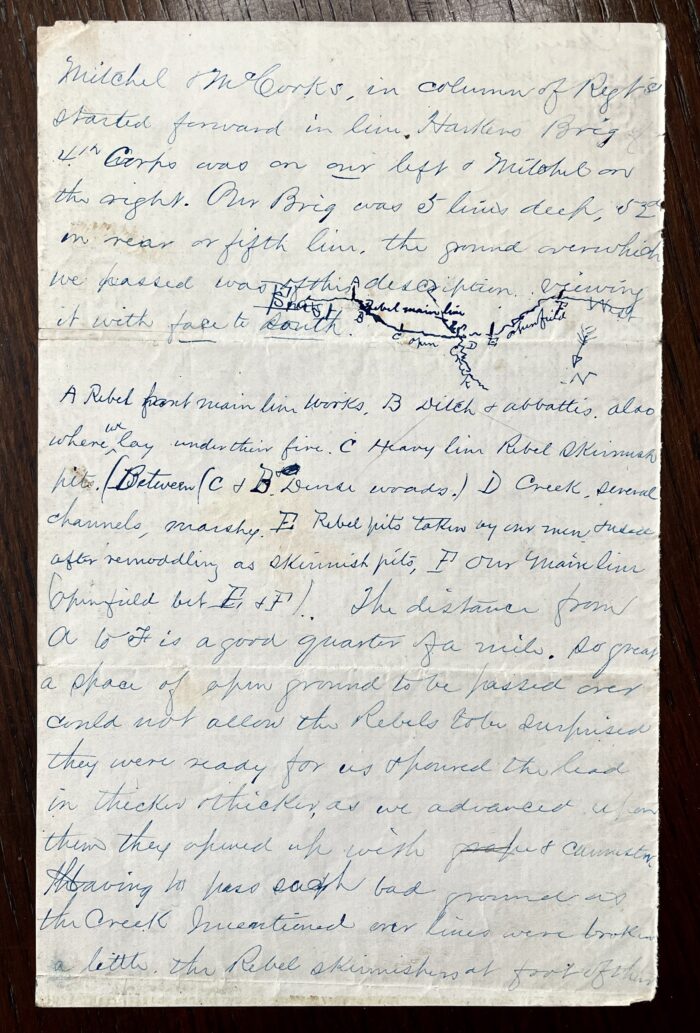 Mitchel & McCooks, in column of Regts
started forward in line. Harkers Brig of
4th Corps was on our left & Mitchel on
the right. Our Brig was 5 lines deep, 52d
in rear or fifth line. the ground over which
we passed was of this description. viewing
it with face to South.
East
A
Rebel main line
B
C open
D
E
openfield
F
West
N
A Rebel front main line works. B Ditch & abbattis. also
where we lay under their fire. C Heavy line Rebel Skirmish
pits. (Between (C & D Dense woods.) D Creek, several
channels, marshy. E Rebel pits taken by our men, & used
after remoddling as skirmish pits, F Our Main line
(openfield bet E & F). The distance from
A to F is a good quarter of a mile. So great
a space of open ground to be passed over
could not allow the Rebels to be surprised
they were ready for us & poured the lead
in thicker & thicker, as we advanced upon
them they opened up with grape & cannister
Having to pass such bad ground as
the Creek I mentioned our lines were broken
a little. the Rebel skirmishers at foot of their